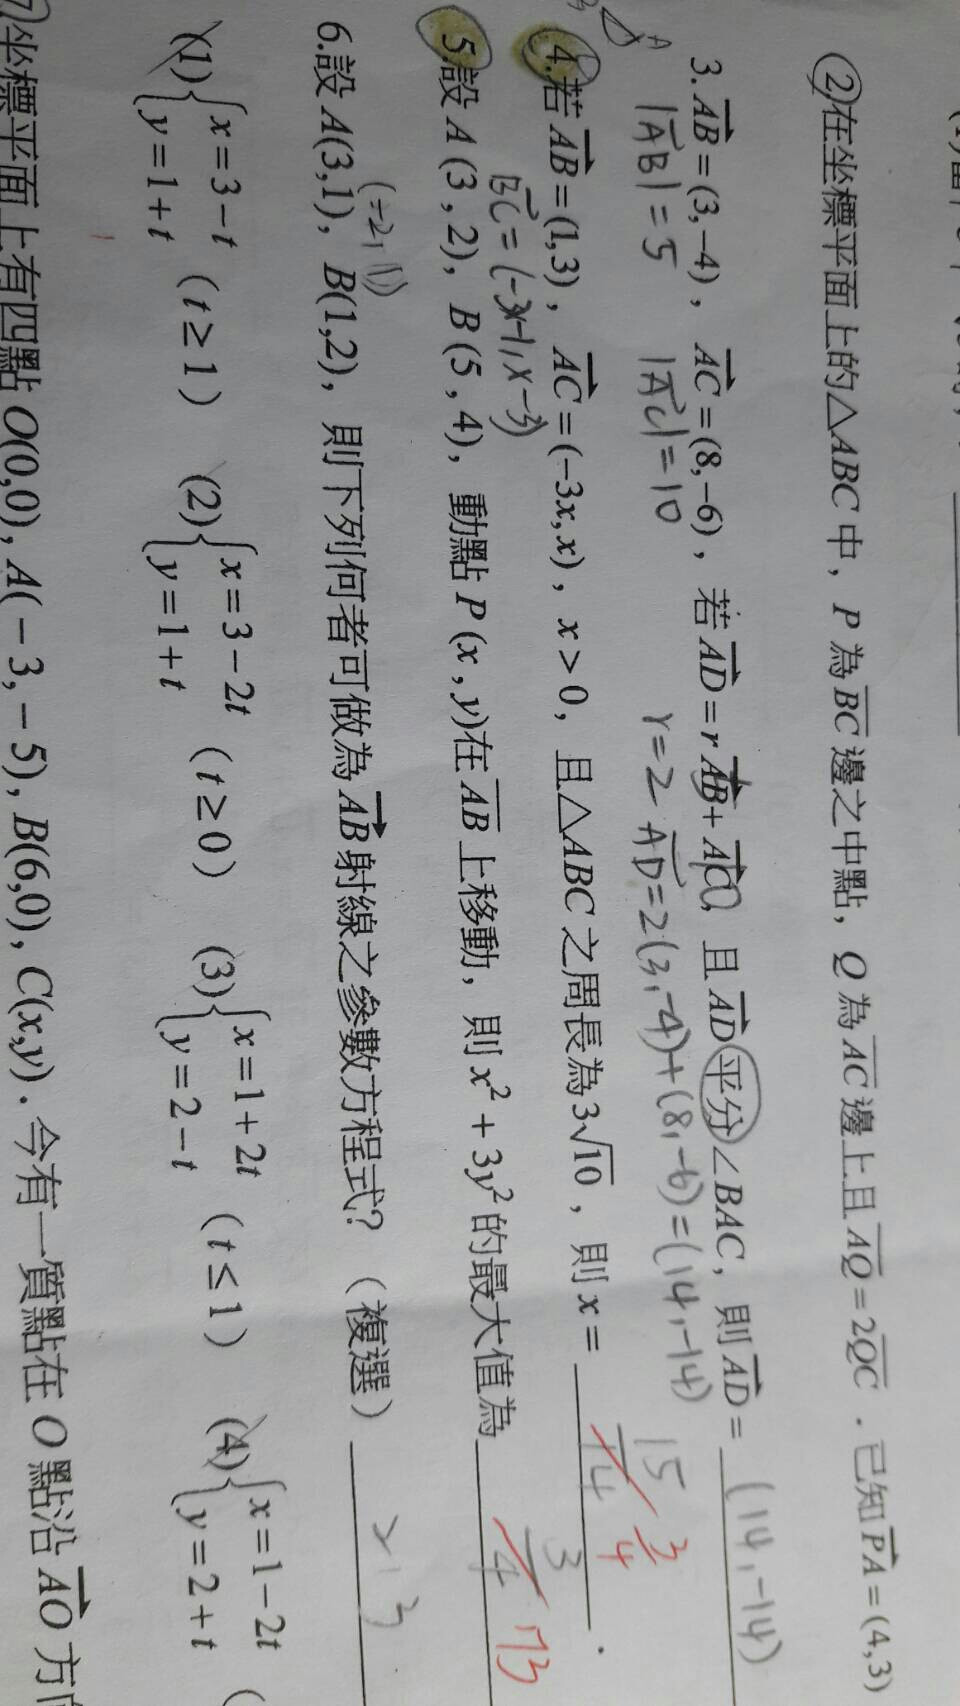 ②在坐標平面上的△ABC中，P為BC邊之中點，Q為AC邊上且AQ=2QC．已知PA=(4,3)
3. AB=(3,-4)，AC=(8,-6)，若AD=rAB+AC，且AD平分∠BAC，則AD= (14,-14)
|AB|=5 |AC|=10 r=2 AD=2(3,-4)+(8,-6)=(14,-14)
4.若AB=(1,3)，AC=(-3x,x)，x>0，且△ABC之周長為3√10，則x= 15/14 3/4
BC=(-3x-1,x-3)
5.設A(3,2)，B(5,4)，動點P(x,y)在AB上移動，則x²+3y²的最大值為 3/4 73
(-2,1)
6.設A(3,1)，B(1,2)，則下列何者可做為AB射線之參數方程式？（複選） 2,3
(1){x=3-t y=1+t （t≥1） (2){x=3-2t y=1+t （t≥0） (3){x=1+2t y=2-t （t≤1） (4){x=1-2t y=2+t （
7.坐標平面上有四點O(0,0), A(-3,-5), B(6,0), C(x,y)．今有一質點在O點沿AO方向